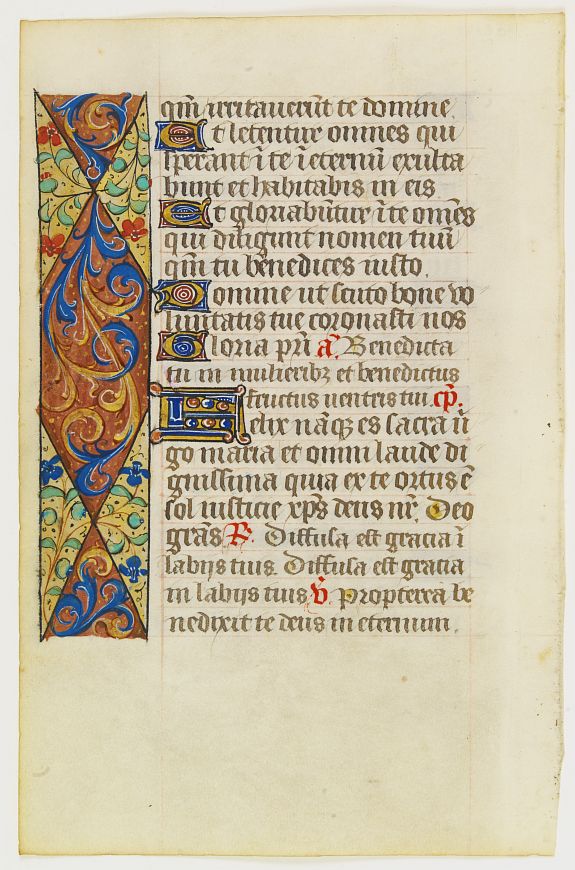 qm̄ irritauerūt te domine.
Et letentur omnes qui
sperant ī te ī eternū exulta
bunt et habitabis in eis
Et gloriabūtur ī te om̄es
qui diligunt nomen tuū
qm̄ tu benedices iusto.
Domine ut scuto bone vo
luntatis tue coronasti nos
Gloria pr̄i a͞. Benedicta
tu in mulieribꝫ et benedictus
fructus uentris tui. cp̄.
Felix nāqꝫ es sacra ū
go maria et omni laude di
gnissima quia ex te ortus ē
sol iusticie xp̄s deus nr̄. Deo
grās ℟. Diffusa est gracia ī
labijs tuis. Diffusa est gracia
in labijs tuis ℣. Propterea be
nedixit te deus in eternum.